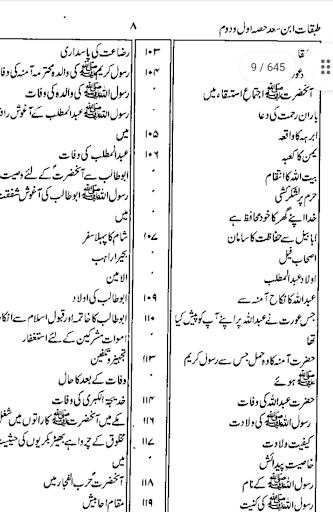 طبقات ابن سعد حصہ اول و دوم
۸
9 / 645
۱۰۳
۱۰۴
آنحضرت ﷺ اجتماع استسقاء میں
باران رحمت کی دعا
ابرہہ کا واقعہ ۱۰۵
یمن کا کعبہ ۱۰۶
بیت اللہ کا انتقام
حرم پر لشکر کشی
خدا اپنے گھر کا خود محافظ ہے
ابابیل سے حفاظت کا سامان ۱۰۷
اصحاب فیل
اولاد عبدالمطلب
عبداللہ کا نکاح آمنہ سے ۱۰۹
جس عورت نے عبداللہ پر اپنے آپ کو پیش کیا ۱۱۰
تھا
حضرت آمنہ کا وہ حمل جس سے رسول کریم ۱۱۳
ﷺ ہوئے
حضرت عبداللہ کی وفات ۱۱۴
رسول اللہ ﷺ کی ولادت ۱۱۶
کیفیت ولادت ۱۱۷
خاصیت پیدائش
رسول اللہ ﷺ کے نام ۱۱۸
رسول اللہ ﷺ کی کنیت ۱۱۹
رضاعت کی پاسداری
رسول کریم ﷺ کی والدہ محترمہ آمنہ کی وفا
رسول اللہ ﷺ کی والدہ کی وفات
رسول اللہ ﷺ عبدالمطلب کے آغوش
میں
عبدالمطلب کی وفات
ابوطالب سے آنحضرت کے لئے وصیت
رسول اللہ ﷺ ابوطالب کی آغوش شفقت
میں
شام کا پہلا سفر
بحیرا راہب
الامین
ابوطالب کی اولاد
ابوطالب کا خاتمہ اور قبول اسلام سے انکا
اموات مشرکین کے لئے استغفار
تجہیز و تکفین
وفات کے بعد کا حال
خدیجۃ الکبری کی وفات
مکے میں آنحضرت ﷺ کا راتوں میں شغل
مخلوق کے چرواہے بھیڑ بکریوں کی حیثیت
میں
آنحضرت حرب الفجار میں
مقام احابیش